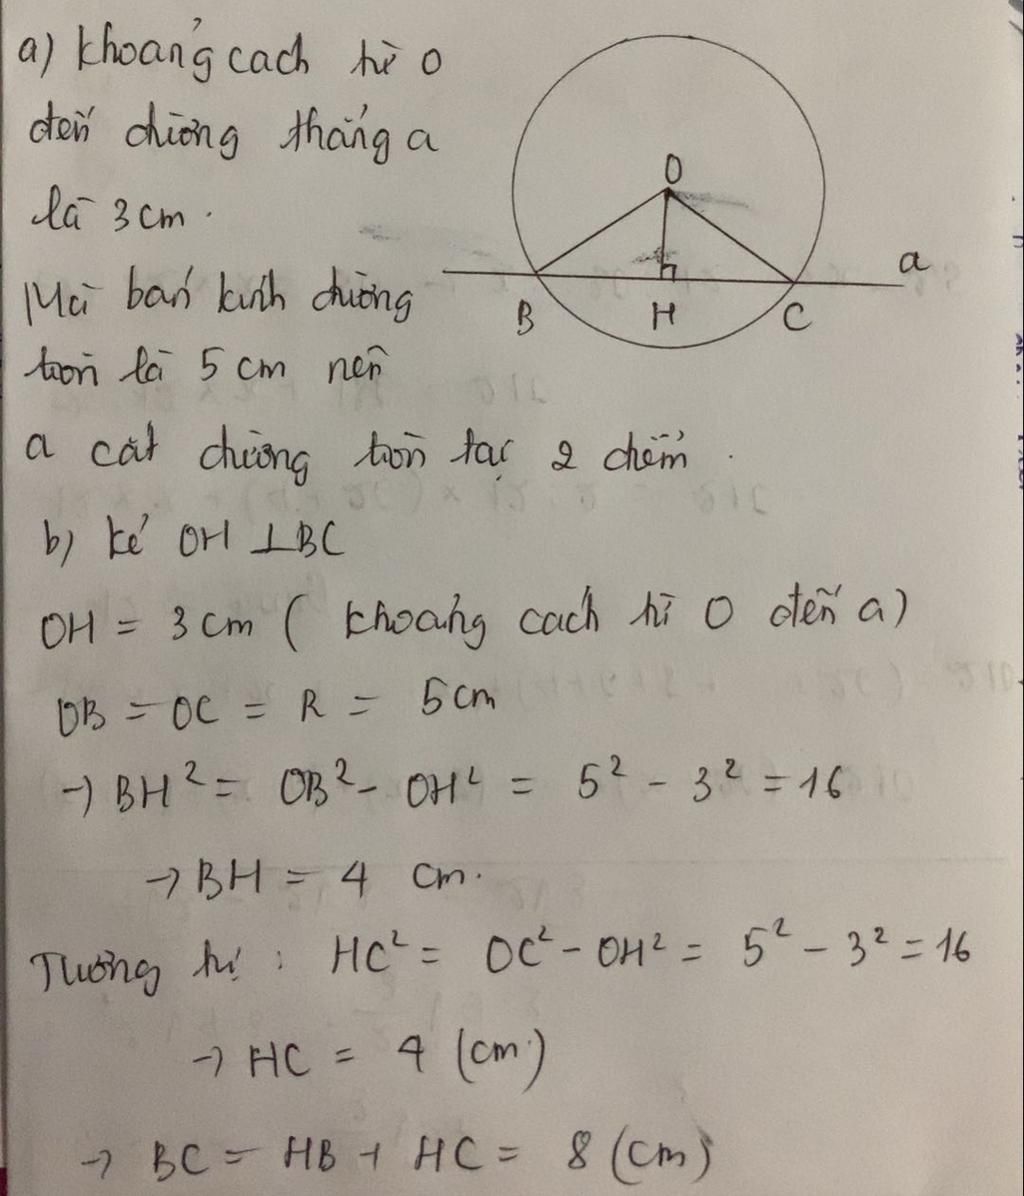 a) khoảng cách từ O
đến đường thẳng a
là 3 cm.
Mà bán kính đường
tròn là 5 cm nên
a cắt đường tròn tại 2 điểm.
O
a
B
H
C
b) kẻ OH ⊥ BC
OH = 3 cm ( khoảng cách từ O đến a)
OB = OC = R = 5 cm
→ BH² = OB² - OH² = 5² - 3² = 16
→ BH = 4 cm.
Tương tự : HC² = OC² - OH² = 5² - 3² = 16
→ HC = 4 (cm)
→ BC = HB + HC = 8 (cm)